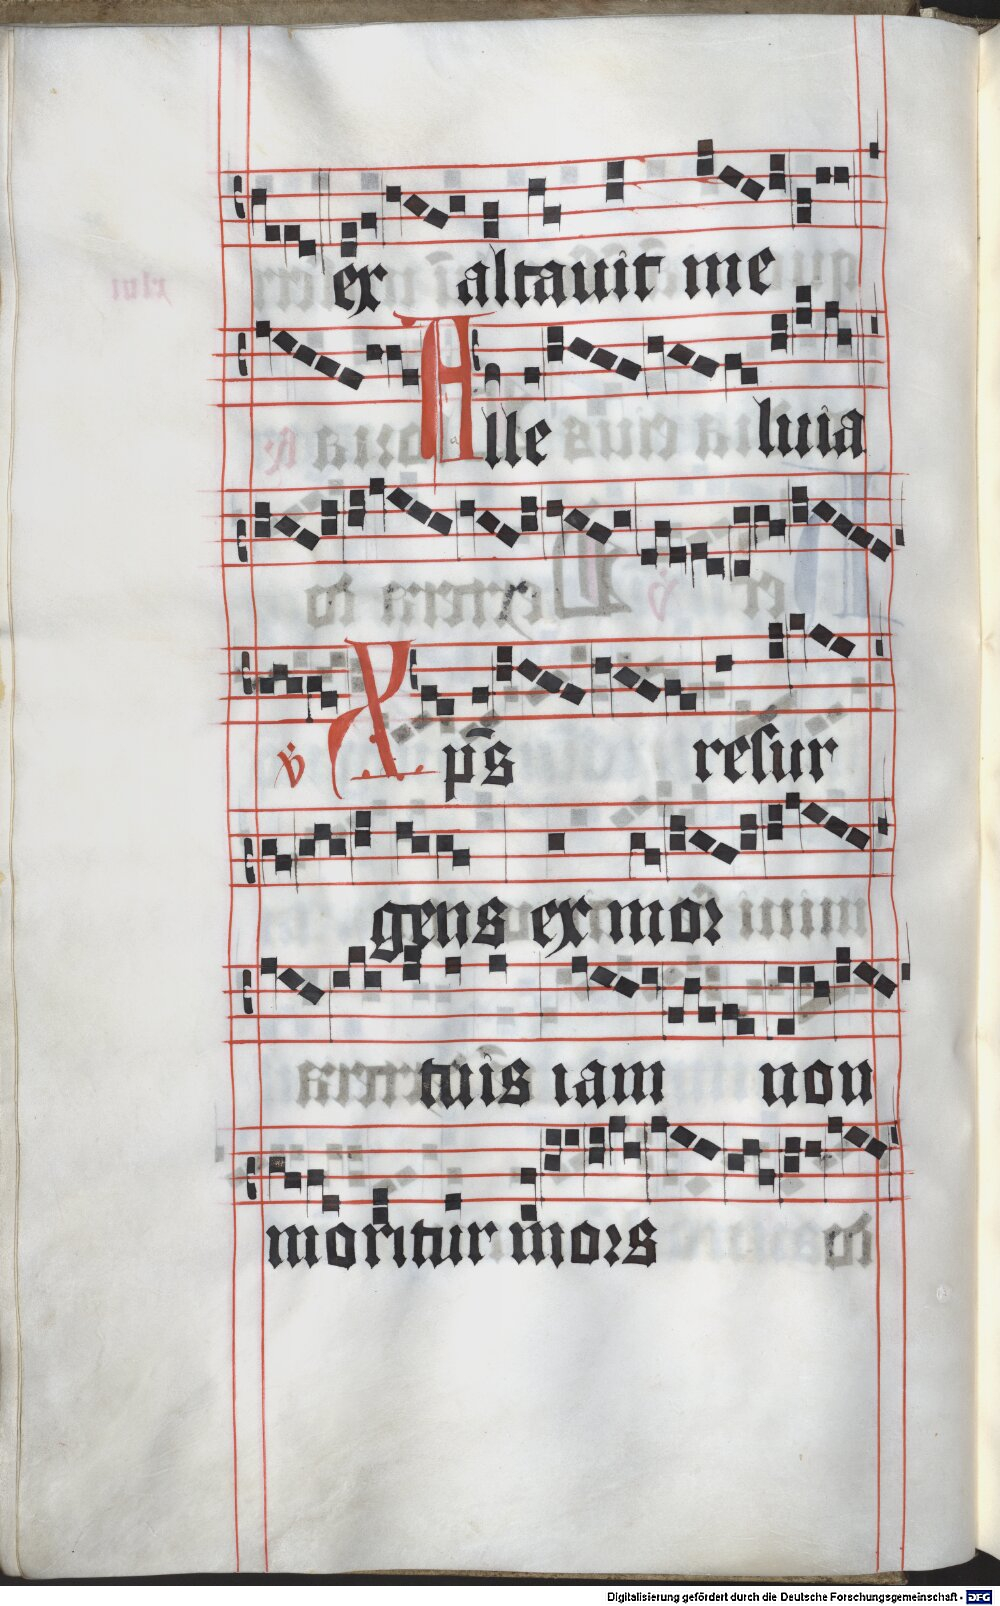 ex altauit me
Alle luia
℣ Xp̄s resur
gens ex mor
tuis iam non
moritur mors
Digitalisierung gefördert durch die Deutsche Forschungsgemeinschaft - DFG